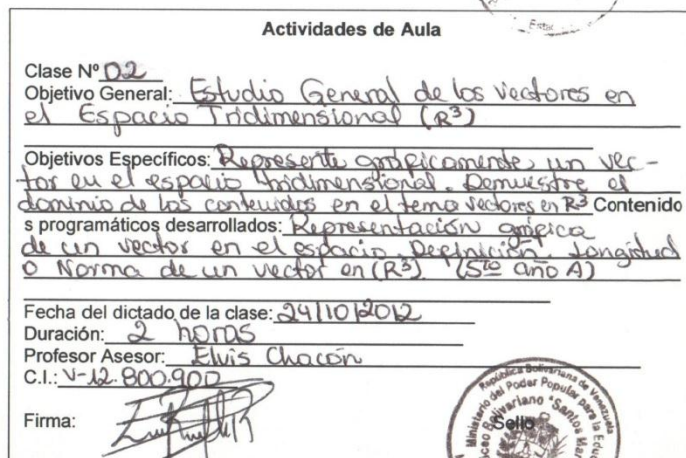 Esta
Actividades de Aula
Clase Nº 02
Objetivo General: Estudio General de los vectores en
el Espacio Tridimensional (R³)
Objetivos Específicos: Represente gráficamente, un vec-
tor en el espacio tridimensional. Demuestre el
dominio de los contenidos en el tema vectores en R³ Contenido
s programáticos desarrollados: Representación gráfica
de un vector en el espacio. Definición. Longitud
o Norma de un vector en (R³). (5to año A)
Fecha del dictado de la clase: 24/10/2012
Duración: 2 horas
Profesor Asesor: Elvis Chacón
C.I.: V-12.800.900
Firma:
Sello
República Bolivariana de Venezuela
Ministerio del Poder Popular para la Educ
Liceo Bolivariano "Santos Mar